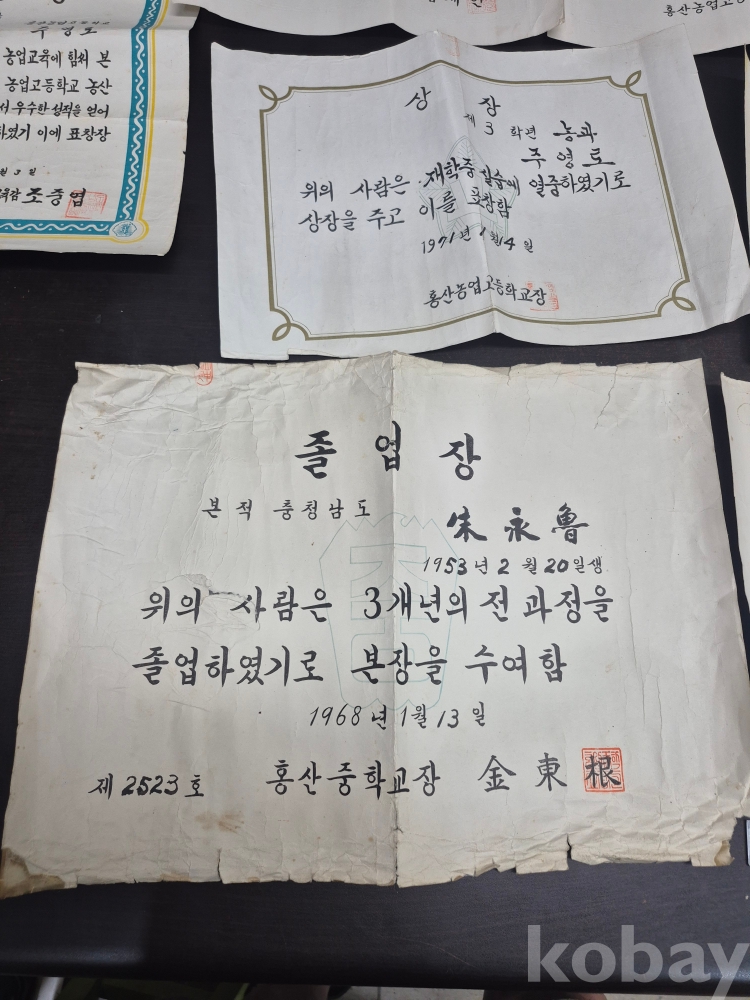 농업교육에 힘써 본
농업고등학교 농산
우수한 성적을 얻어
하였기 이에 표창장
조증엽
홍산농업고
상 장
제 3 학년 농과
주영로
위의 사람은 재학중 실습에 열중하였기로
상장을 주고 이를 표창함
1971년 1월 14일
홍산농업고등학교장
졸업장
본적 충청남도
朱永魯
1953년 2월 20일생
위의 사람은 3개년의 전 과정을
졸업하였기로 본장을 수여함
1968년 1월 13일
제 2523 호 홍산중학교장 金東根
kobay